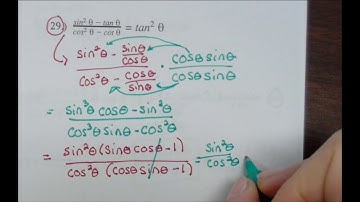 29. (sin² θ − tan θ)/(cos² θ − cot θ) = tan² θ
(sin²θ − sinθ/cosθ)/(cos²θ − cosθ/sinθ) · (cosθ sinθ)/(cosθ sinθ)
= (sin³θ cosθ − sin²θ)/(cos³θ sinθ − cos²θ)
= (sin²θ (sinθ cosθ − 1))/(cos²θ (cosθ sinθ − 1)) = sin²θ/cos²θ